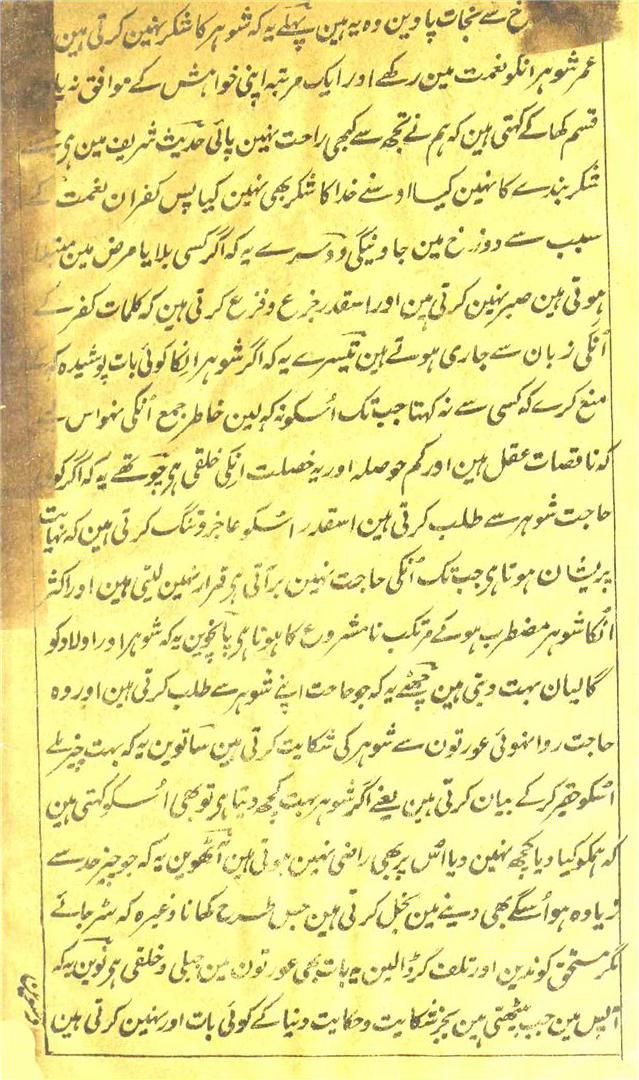 خ سے نجات پاوین وہ یہ ہین پہلے یہ کہ شوہر کا شکر نہین کرتی ہین
عمر شوہر انکو نعمت مین رکھے اور ایک مرتبہ اپنی خواہش کے موافق نہ
قسم کھا کے کہتی ہین کہ ہم نے تجھ سے کبھی راحت نہین پائی حدیث شریف مین ہی
شکر بندے کا نہین کیا اوسنے خدا کا شکر بھی نہین کیا پس کفران نعمت کے
سبب سے دوزخ مین جاوینگی دوسرے یہ کہ اگر کسی بلا یا مرض مین مبتلا
ہوتی ہین صبر نہین کرتی ہین اور اسقدر جزع و فزع کرتی ہین کہ کلمات کفر کے
اُنکی زبان سے جاری ہوتے ہین تیسرے یہ کہ اگر شوہر انکا کوئی بات پوشیدہ
منع کرے کہ کسی سے نہ کہنا جب تک اُسکو نہ کہہ لین خاطر جمع اُنکی نہو اس
کہ ناقصات عقل ہین اور کم حوصلہ اور یہ خصلت انکی خلقی ہی چوتھے یہ کہ اگر کو
حاجت شوہر سے طلب کرتی ہین اسقدر اُسکو عاجز و تنگ کرتی ہین کہ نہایت
پریشان ہوتا ہی جب تک اُنکی حاجت نہین برآتی ہی قرار نہین لیتی ہین اور اکثر
اُنکا شوہر مضطرب ہو کے مرتکب نا مشروع کا ہوتا ہی پانچوین یہ کہ شوہر اور اولاد کو
گالیان بہت دیتی ہین چھٹے یہ کہ جو حاجت اپنے شوہر سے طلب کرتی ہین اور وہ
حاجت روا نہوئی عورتون سے شوہر کی شکایت کرتی ہین ساتوین یہ کہ بہت چیز ملے
اُسکو حقیر کر کے بیان کرتی ہین یعنے اگر شوہر بہت کچھ دیتا ہی تو بھی اُسکو کہتی ہین
کہ ہمکو کیا دیا کچھ نہین دیا اُس پر بھی راضی نہین ہوتی ہین آٹھوین یہ کہ جو چیز حد سے
زیادہ ہو اُسکے بھی دینے مین بخل کرتی ہین جس طرح کھانا وغیرہ کہ سڑ جائے
مگر مستحق کو ندین اور تلف کر ڈالین یہ بات بھی عورتون مین جبلی و خلقی ہی نوین یہ کہ
آپس مین جب بیٹھتی ہین بجز شکایت و حکایت دنیا کے کوئی بات اور نہین کرتی ہین